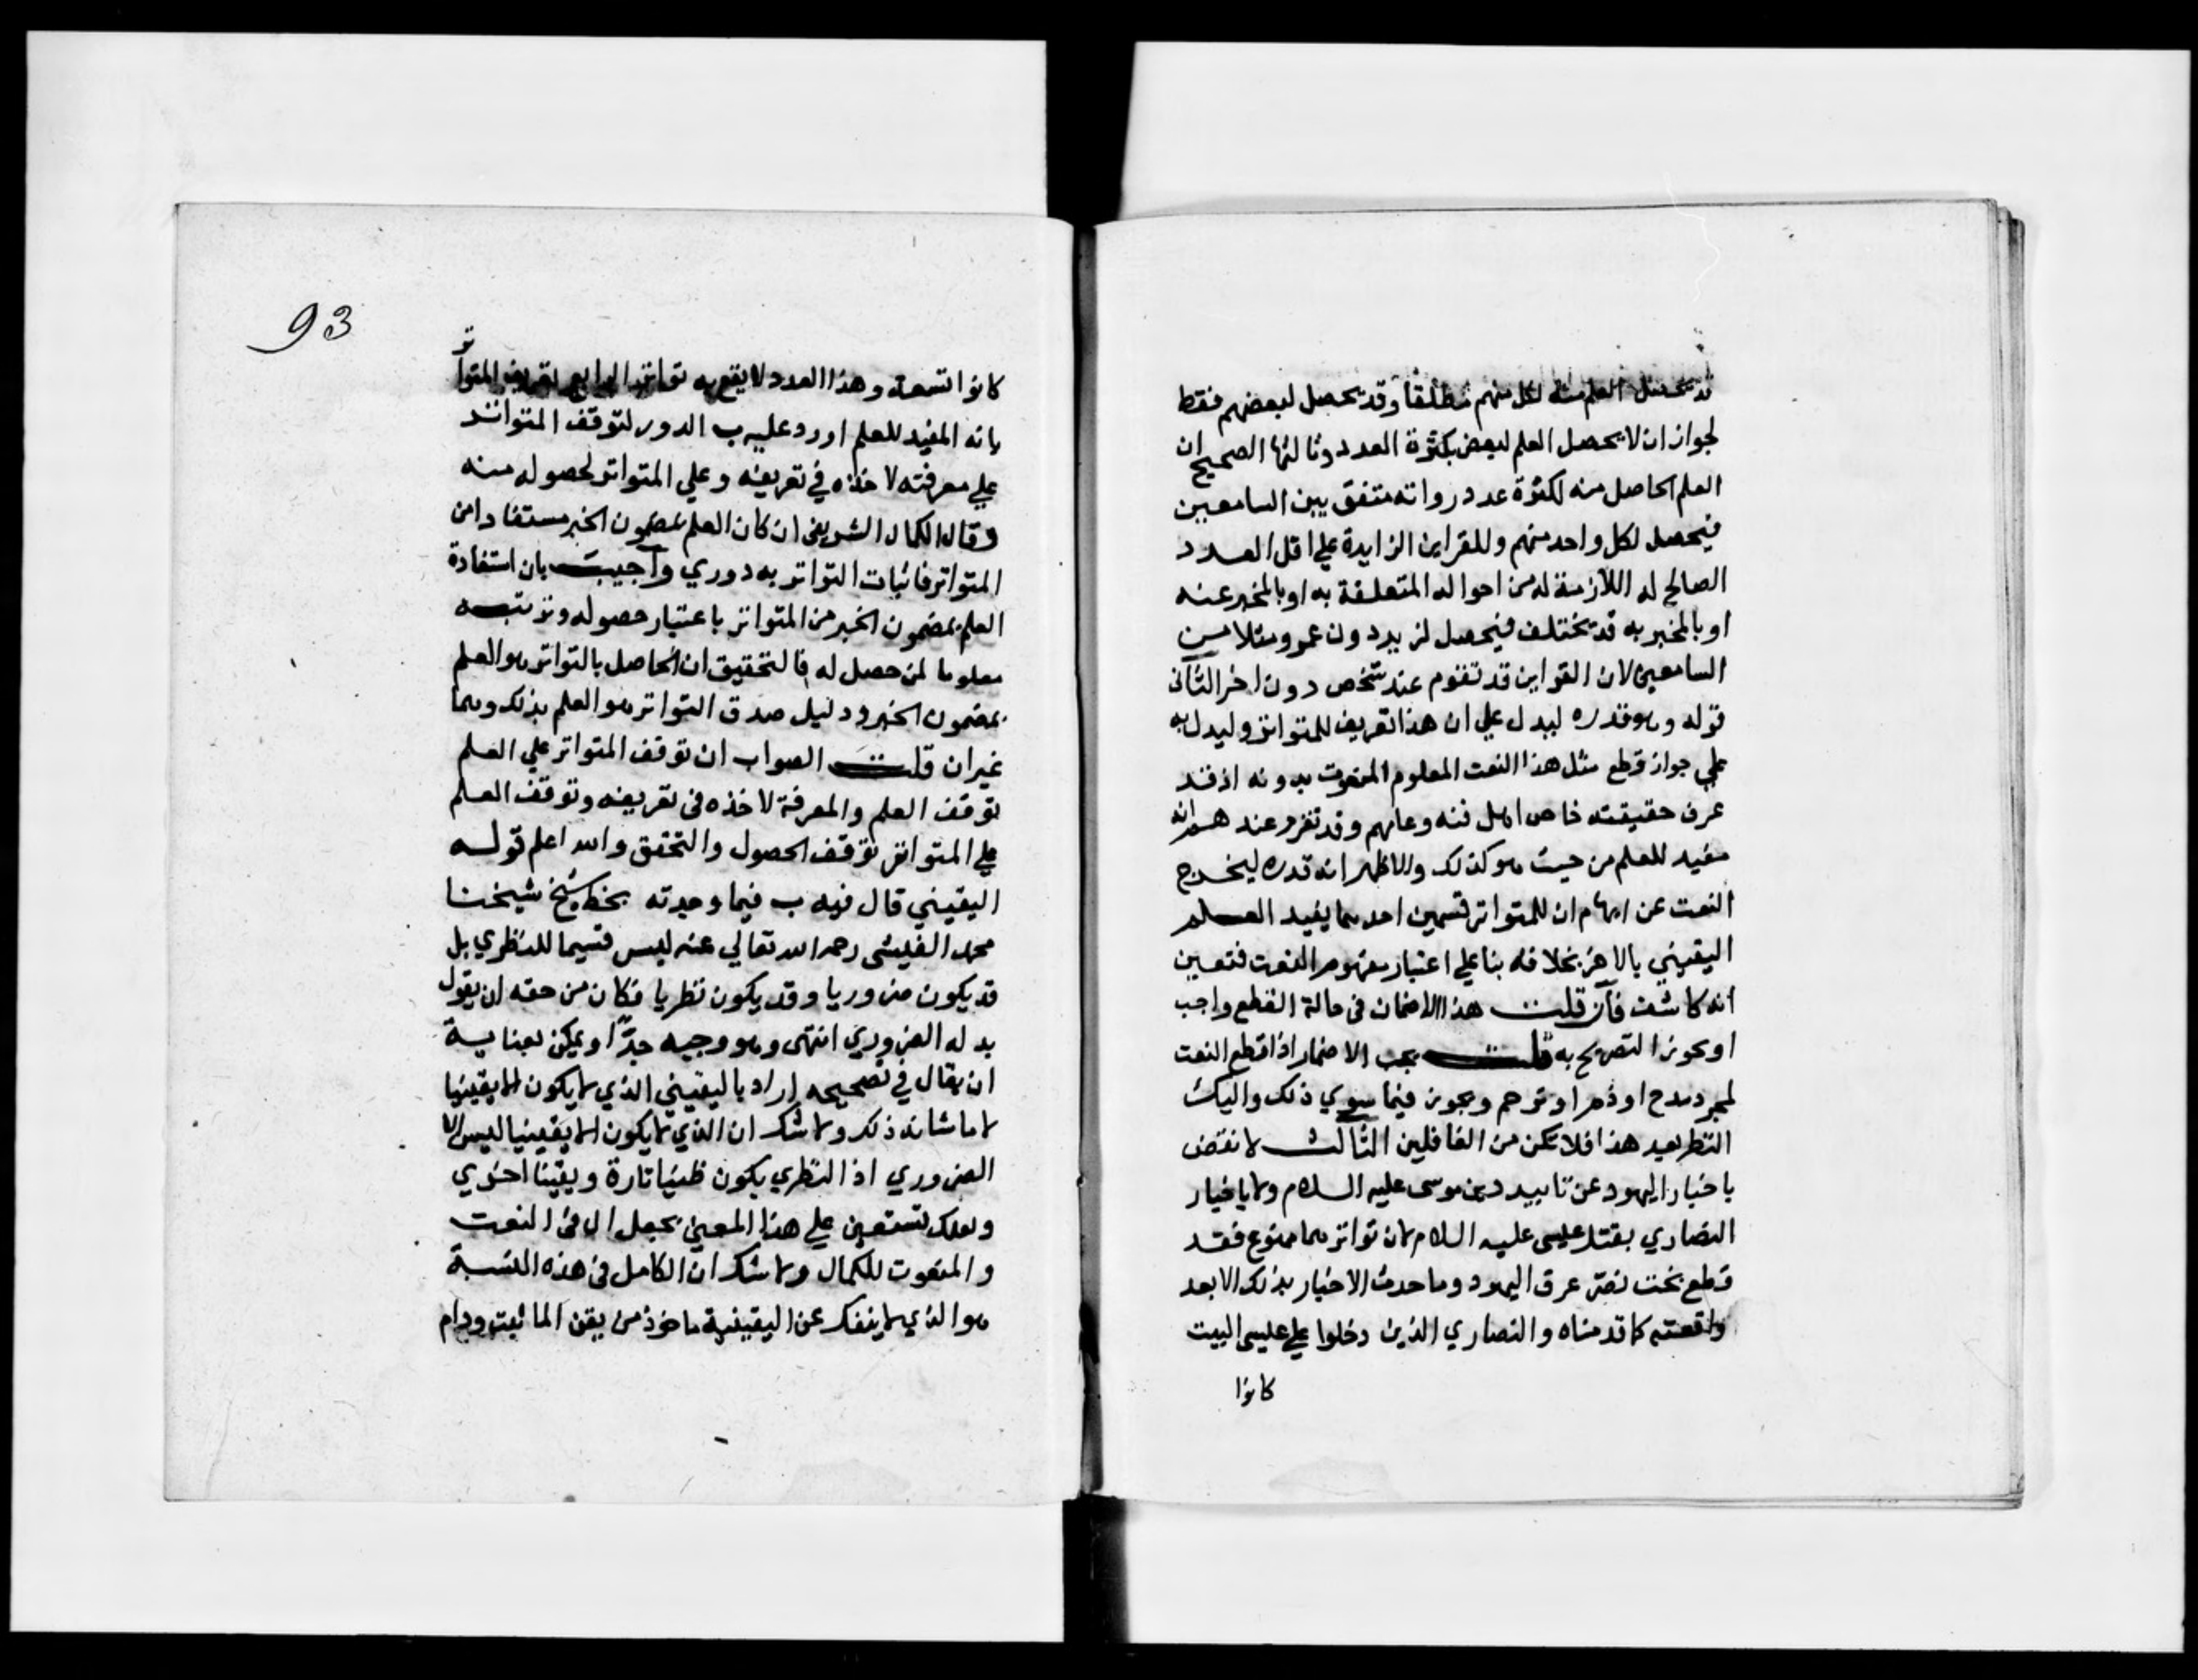 قد يحصل العلم منه لكل منهم مطلقا وقد يحصل لبعضهم فقط
لجواز ان لا يحصل العلم لبعض بكثرة العدد وثالثها الصحيح ان
العلم الحاصل منه لكثرة عدد رواته متفق بين السامعين
فيحصل لكل واحد منهم وللقراين الزايدة علي اقل العدد
الصالح له اللازمة له من احواله المتعلقة به او بالمخبر عنه
او بالمخبر به قد يختلف فيحصل لزيد دون عمرو مثلا من
السامعين لان القراين قد تقوم عند شخص دون اخر الثاني
قوله وهو قدره ليدل علي ان هذا تعريف للمتواتر وليدل به
علي جواز قطع مثل هذا النعت المعلوم المنعوت بدونه اذ قد
عرف حقيقته خاص اهل فنه وعامهم وقد تقرر عندهم انه
مفيد للعلم من حيث هو كذلك والاظهر انه قدره ليخرج
النعت عن ايهام ان للمتواتر قسمين احدهما يفيد العلم
اليقيني بالاخر بخلافه بنا علي اعتبار مفهوم النعت فتعين
انه كاشف فان قلت هذا الاضمار في حالة القطع واجب
او يجوز التصريح به قلت يجب الاضمار اذا قطع النعت
لمجرد مدح او ذم او ترحم ويجوز فيما سوي ذلك واليك
النظر بعيد هذا فلا تكن من الغافلين الثالث لا نقض
باخبار اليهود عن تابيد دين موسى عليه السلام ولا باخبار
النصاري بقتل عيسى عليه السلام لان تواترهما ممنوع فقد
قطع بخت نصر عرق اليهود وما حدث الاخبار بذلك الا بعد
واقعته كما قدمناه والنصاري الذين دخلوا علي عيسى البيت
كانوا
93
كانوا تسعة وهذا العدد لا يقع به تواتر الرابع تعريف المتواتر
بانه المفيد للعلم اورد عليه ب الدور لتوقف المتواتر
علي معرفته لاخذه في تعريفه وعلي المتواتر لحصوله منه
وقال الكمال الشريفي ان كان العلم بمضمون الخبر مستفادا من
المتواتر فاثبات التواتر به دوري واجيب بان استفادة
العلم بمضمون الخبر من المتواتر باعتبار حصوله وترتبه
معلوما لمن حصل له فالتحقيق ان الحاصل بالتواتر هو العلم
بمضمون الخبر ودليل صدق التواتر هو العلم بذلك وهما
غيران قلت الصواب ان توقف المتواتر علي العلم
توقف العلم والمعرفة لاخذه في تعريفه وتوقف العلم
علي المتواتر توقف الحصول والتحقق والله اعلم قوله
اليقيني قال فيه ب فيما وجدته بخط شيخ شيخنا
محمد الفيشى رحمه الله تعالي عنه ليس قسيما للنظري بل
قد يكون ضروريا وقد يكون نظريا فكان من حقه ان يقول
بدله الضروري انتهى وهو وجيه جدا ويمكن بعناية
ان يقال في تصحيحه اراد باليقيني الذي لا يكون الا يقينيا
لا ما شانه ذلك ولا شك ان الذي لا يكون الا يقينيا ليس الا
الضروري اذ النظري يكون ظنيا تارة ويقينا اخري
ولعلك تستعين علي هذا المعين بجعل ال في النعت
والمنعوت للكمال ولا شك ان الكامل في هذه النسبة
هو الذي لا ينفك عن اليقينية ماخوذ من يقن الما ثبت ودام